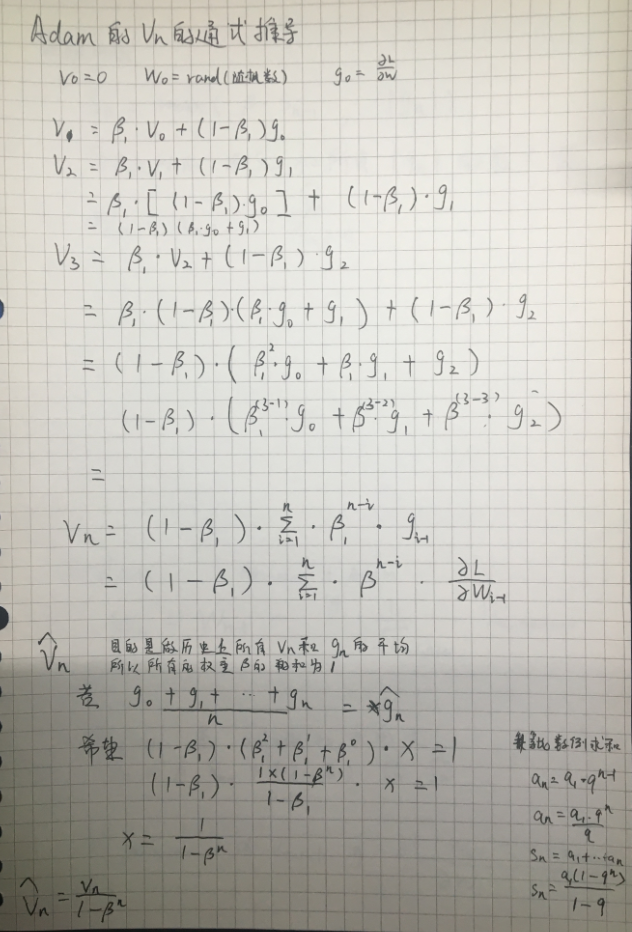 Adam 的 Vn 的通式推导
V₀=0 W₀=rand(随机数) g₀= ∂L/∂W
V₁ = β₁·V₀+(1-β₁)g₀
V₂ = β₁·V₁+(1-β₁)g₁
= β₁·[(1-β₁)·g₀] + (1-β₁)·g₁
= (1-β₁)(β₁·g₀+g₁)
V₃ = β₁·V₂+(1-β₁)·g₂
= β₁·(1-β₁)·(β₁·g₀+g₁)+(1-β₁)·g₂
= (1-β₁)·(β₁²·g₀+β₁·g₁+g₂)
(1-β₁)·(β₁^(3-1)·g₀+β^(3-2)·g₁+β^(3-3)·g₂)
=
Vn = (1-β₁)·∑_{i=1}^{n}·β₁^{n-i}·g_{i-1}
= (1-β₁)·∑_{i=1}^{n}·β^{n-i}·∂L/∂W_{i-1}
V̂n 目的是做历史上所有 Vn和 gn 的平均
所以所有的权重β的和为1
若 (g₀+g₁+…+gn)/n = ĝn
希望 (1-β₁)·(β₁²+β₁¹+β₁⁰)·x=1
(1-β₁)·(1×(1-βⁿ))/(1-β₁)·x=1
x= 1/(1-βⁿ)
V̂n = Vn/(1-βⁿ)
等比数列求和
an=a₁·q^{n-1}
an=(a₁·qⁿ)/q
Sn=a₁+…+an
Sn=a₁(1-qⁿ)/(1-q)